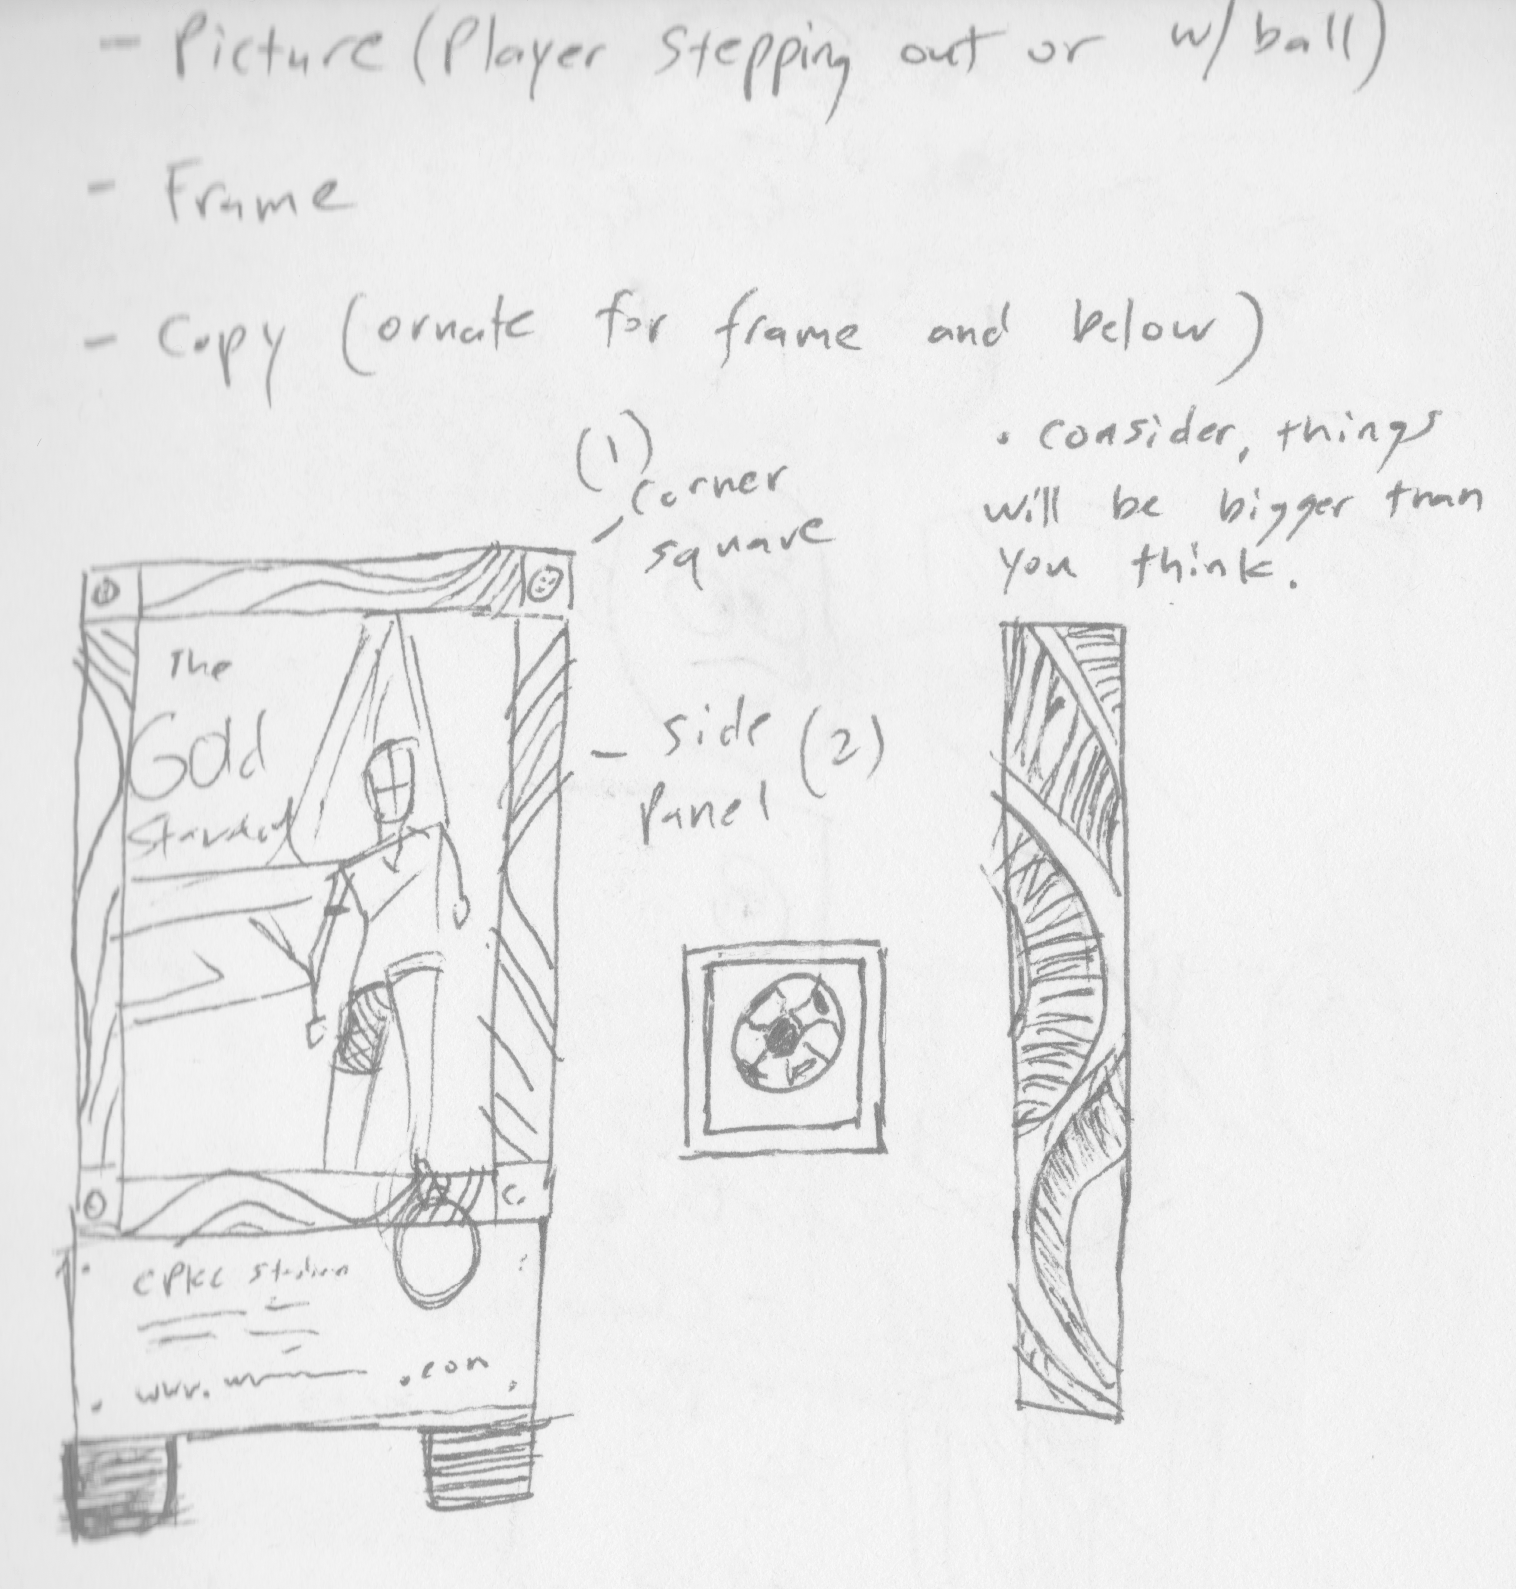 - Picture (Player stepping out or w/ ball)
- Frame
- Copy (ornate for frame and below)
(1)
corner
square
• consider, things
will be bigger than
you think.
The
Gold
Standard
- side (2)
panel
CPKC Stadium
www. .com